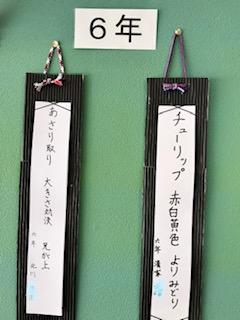 6年
チューリップ 赤白黄色 よりみどり
六年
あさり取り 大きさ対決 兄が上
六年